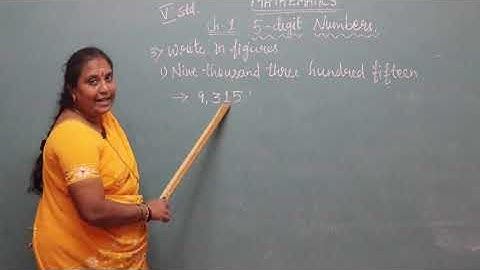 MATHEMATICS
V Std.
Ch. 1 5-digit Numbers.
3) Write in figures
1) Nine thousand three hundred fifteen
→ 9,315